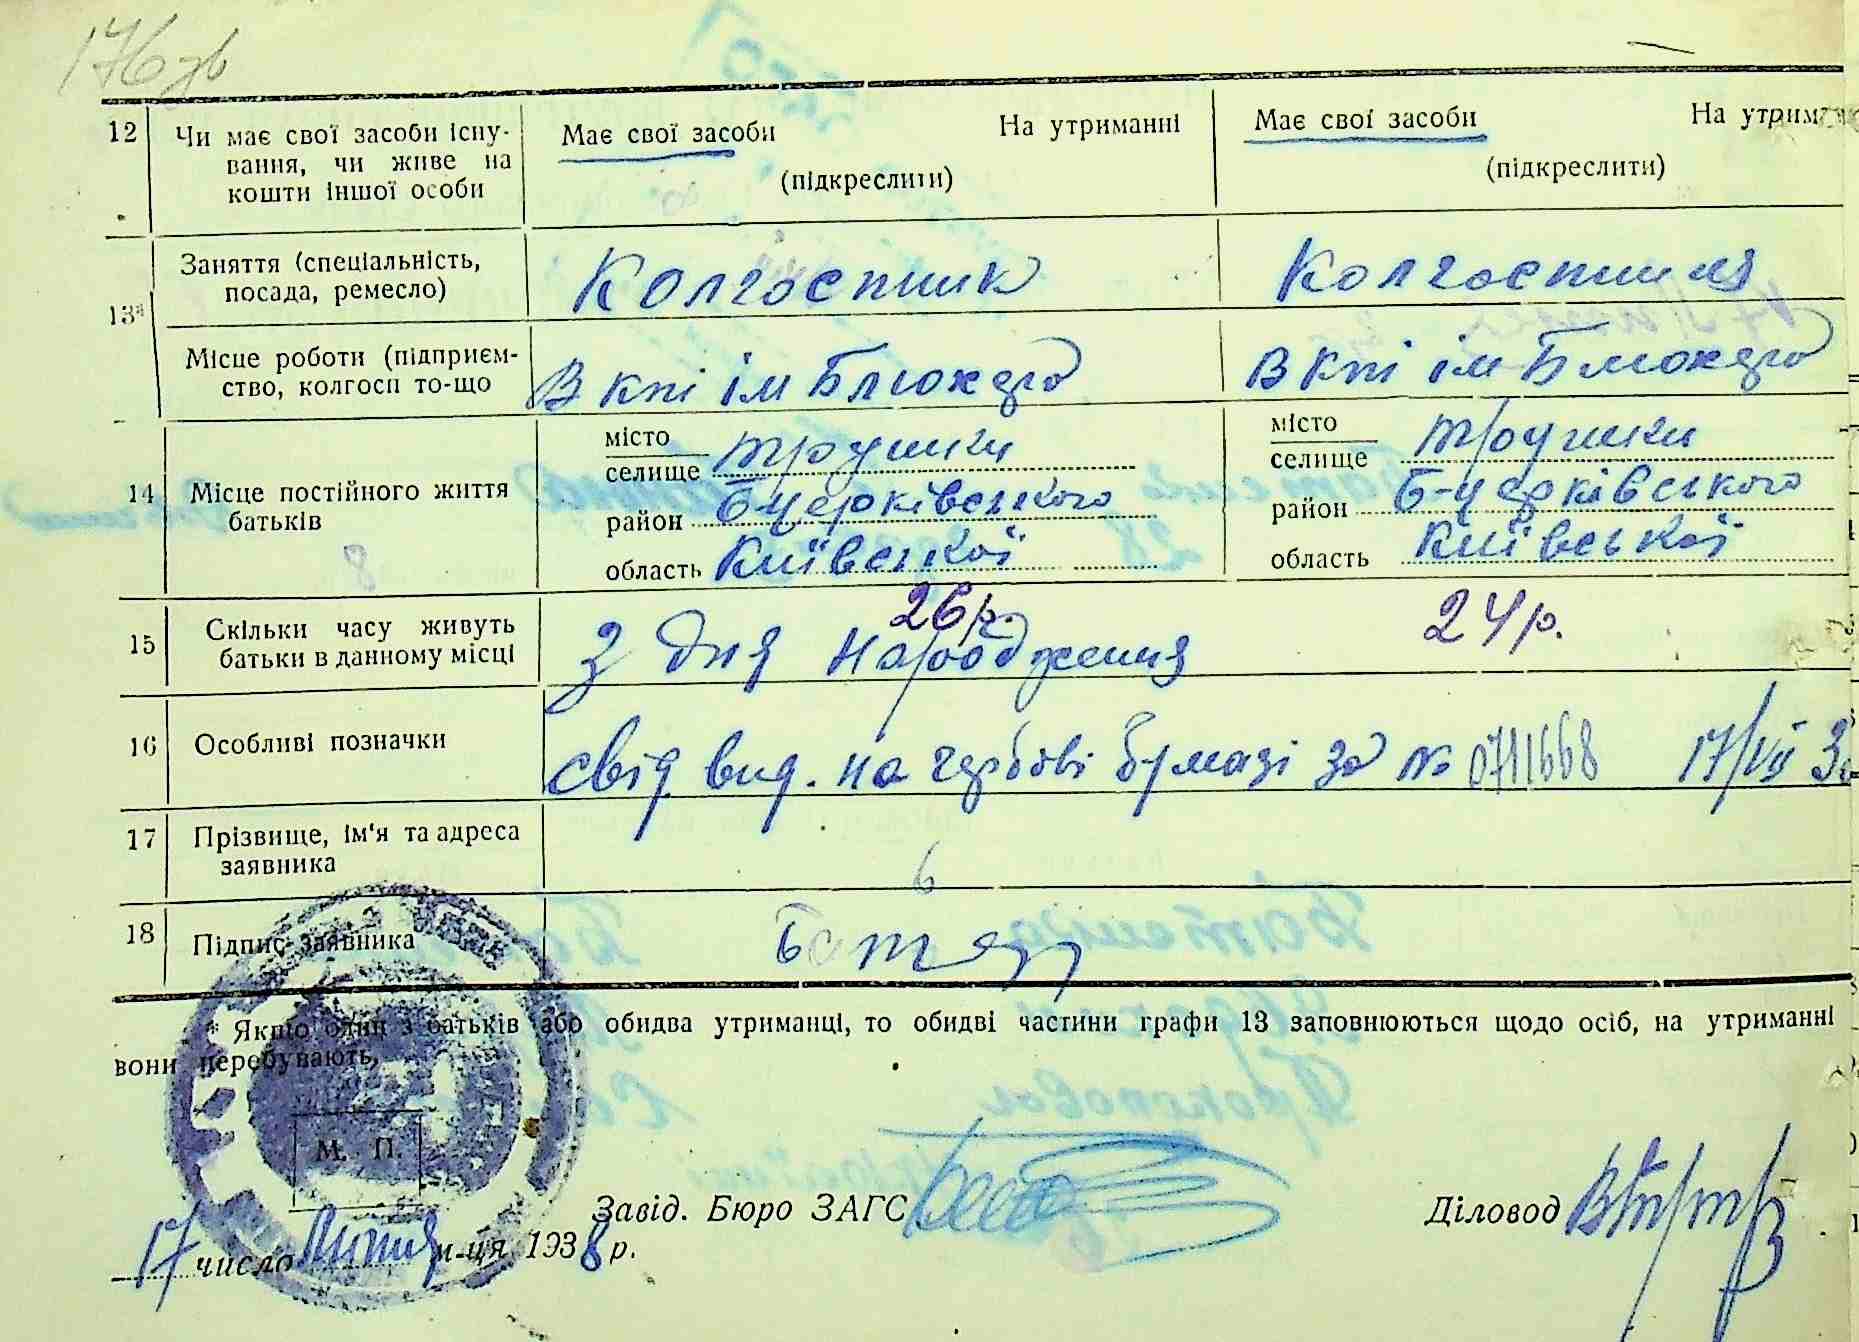 176 зв
12 Чи має свої засоби існу- Має свої засоби На утриманні Має свої засоби На утрим
вання, чи живе на
кошти іншої особи (підкреслити) (підкреслити)
Заняття (спеціальність, Колгоспник Колгоспниця
посада, ремесло)
13*
Місце роботи (підприєм- В кпі ім Блюхера В кпі ім Блюхера
ство, колгосп то-що
місто Трушки місто Трушки
селище селище
14 Місце постійного життя район Б-церківського район Б-церківського
батьків область Київської область Київської
26р. 24р.
15 Скільки часу живуть З дня народження
батьки в данному місці
16 Особливі позначки свід вид. на гербові бумазі за № 0711668 17/VII 3
17 Прізвище, ім'я та адреса
заявника
6
18 Підпис заявника
* Якщо один з батьків або обидва утриманці, то обидві частини графи 13 заповнюються щодо осіб, на утриманні
вони перебувають,
М. П.
Завід. Бюро ЗАГС Діловод
17 число Липня м-ця 1938 р.